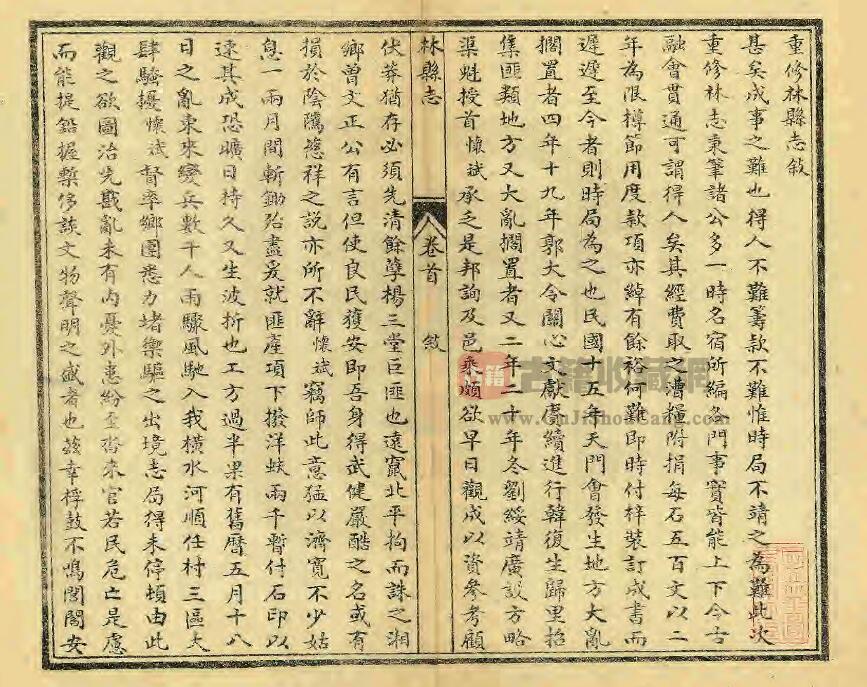 重修林縣志敘
甚矣成事之難也得人不難籌款不難惟時局不靖之為難此次
重修林志秉筆諸公多一時名宿所編各門事實皆能上下今古
融會貫通可謂得人矣其經費取之漕糧附捐每石五百文以二
年為限樽節用度款項亦綽有餘裕何難即時付梓裝訂成書而
遲遲至今者則時局為之也民國十五年天門會發生地方大亂
擱置者四年十九年郭大令關心文獻賡續進行韓復生歸里招
集匪類地方又大亂擱置者又二年二十年冬劉綏靖廣設方略
渠魁授首懷斌承乏是邦詢及邑乘頗欲早日觀成以資參考顧
林縣志
卷首
敘
伏莽猶存必須先清餘孽楊三堂巨匪也遠竄北平拘而誅之湘
鄉曾文正公有言但使良民獲安即吾身得武健嚴酷之名或有
損於陰騭慈祥之說亦所不辭懷斌竊師此意猛以濟寬不少姑
息一兩月間斬鋤殆盡爰就匪產項下撥洋蚨兩千暫付石印以
速其成恐曠日持久又生波折也工方過半果有舊曆五月十八
日之亂東來變兵數千人雨驟風馳入我橫水河順任村三區大
肆騷擾懷斌督率鄉團悉力堵禦驅之出境志局得未停頓由此
觀之欲圖治先戡亂未有內憂外患紛至沓來官若民危亡是慮
而能提鉛握槧侈談文物聲明之盛者也茲幸桴鼓不鳴閭閻安
古籍收藏網
www.GuJiShouCang.com